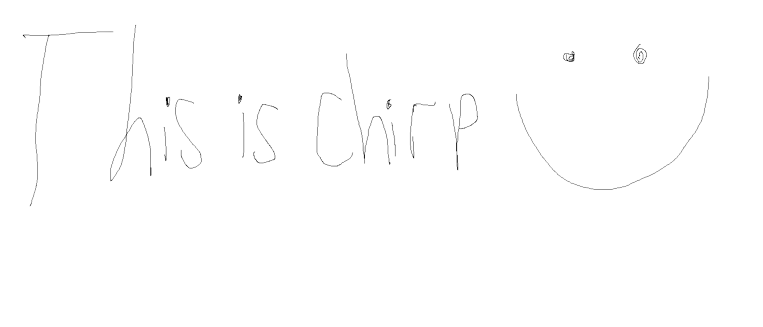 This is chirp